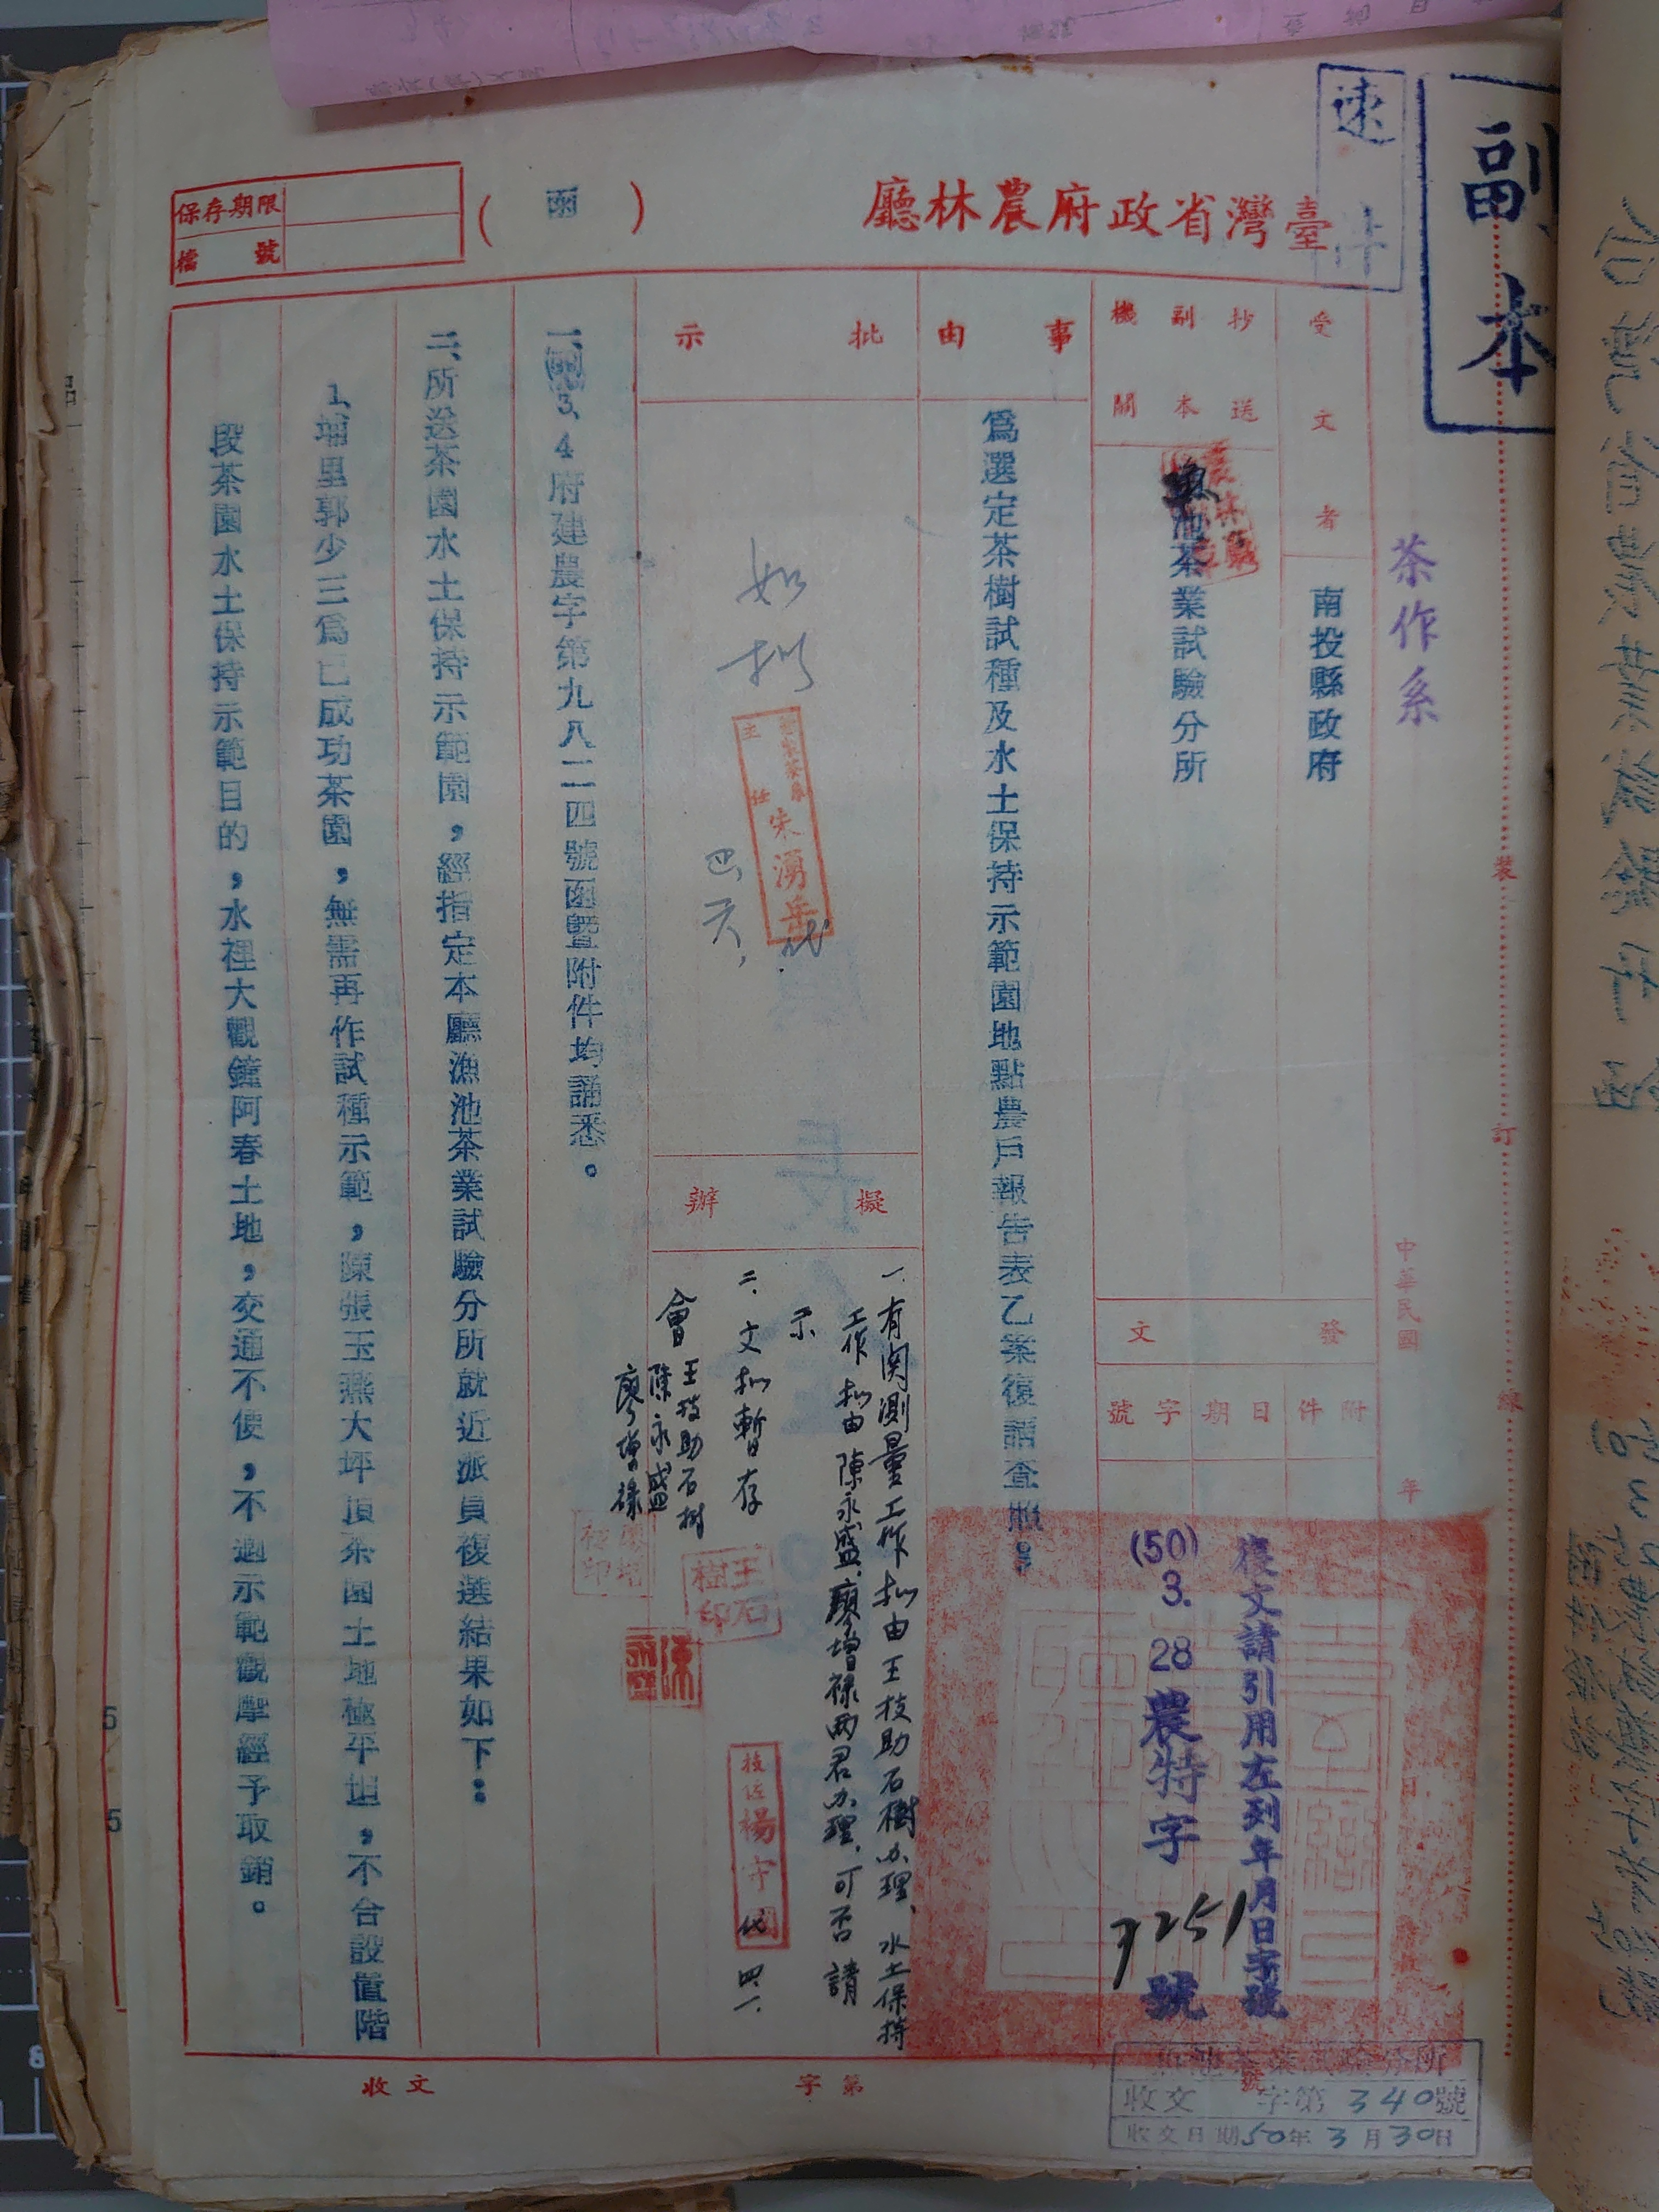 副本
速件
臺灣省政府農林廳
(函)
保存期限
檔號
茶作系
受文者
南投縣政府
抄送副本機關
魚池茶業試驗分所
中華民國 年 日
發文
附件
日期
字號
復文請引用左列年月日字號
(50) 3. 28 農特字 7251 號
事由
為選定茶樹試種及水土保持示範園地點農戶報告表乙案復請查照。
批示
如擬
主任 朱湧岳 代
四、六、
擬辦
一、有関測量工作拟由王技助石樹办理、水土保持
工作拟由陳永盛、廖增祿两君办理、可否請
示
二、文拟暫存
會 王技助石樹
陳永盛
廖增祿
王石樹印
技佐楊守國 代 四、一、
一、 3、4 府建農字第九八二四號函暨附件均誦悉。
二、所送茶園水土保持示範園，經指定本廳漁池茶業試驗分所就近派員複選結果如下：
1、埔里郭少三為已成功茶園，無需再作試種示範，陳張玉燕大坪頂茶園土地極平坦，不合設置階
段茶園水土保持示範目的，水裡大觀鐘阿春土地，交通不便，不適示範觀摩經予取銷。
裝
訂
線
收文
字第
號
魚池茶業試驗分所
收文 字第 340 號
收文日期 50年 3月 30日